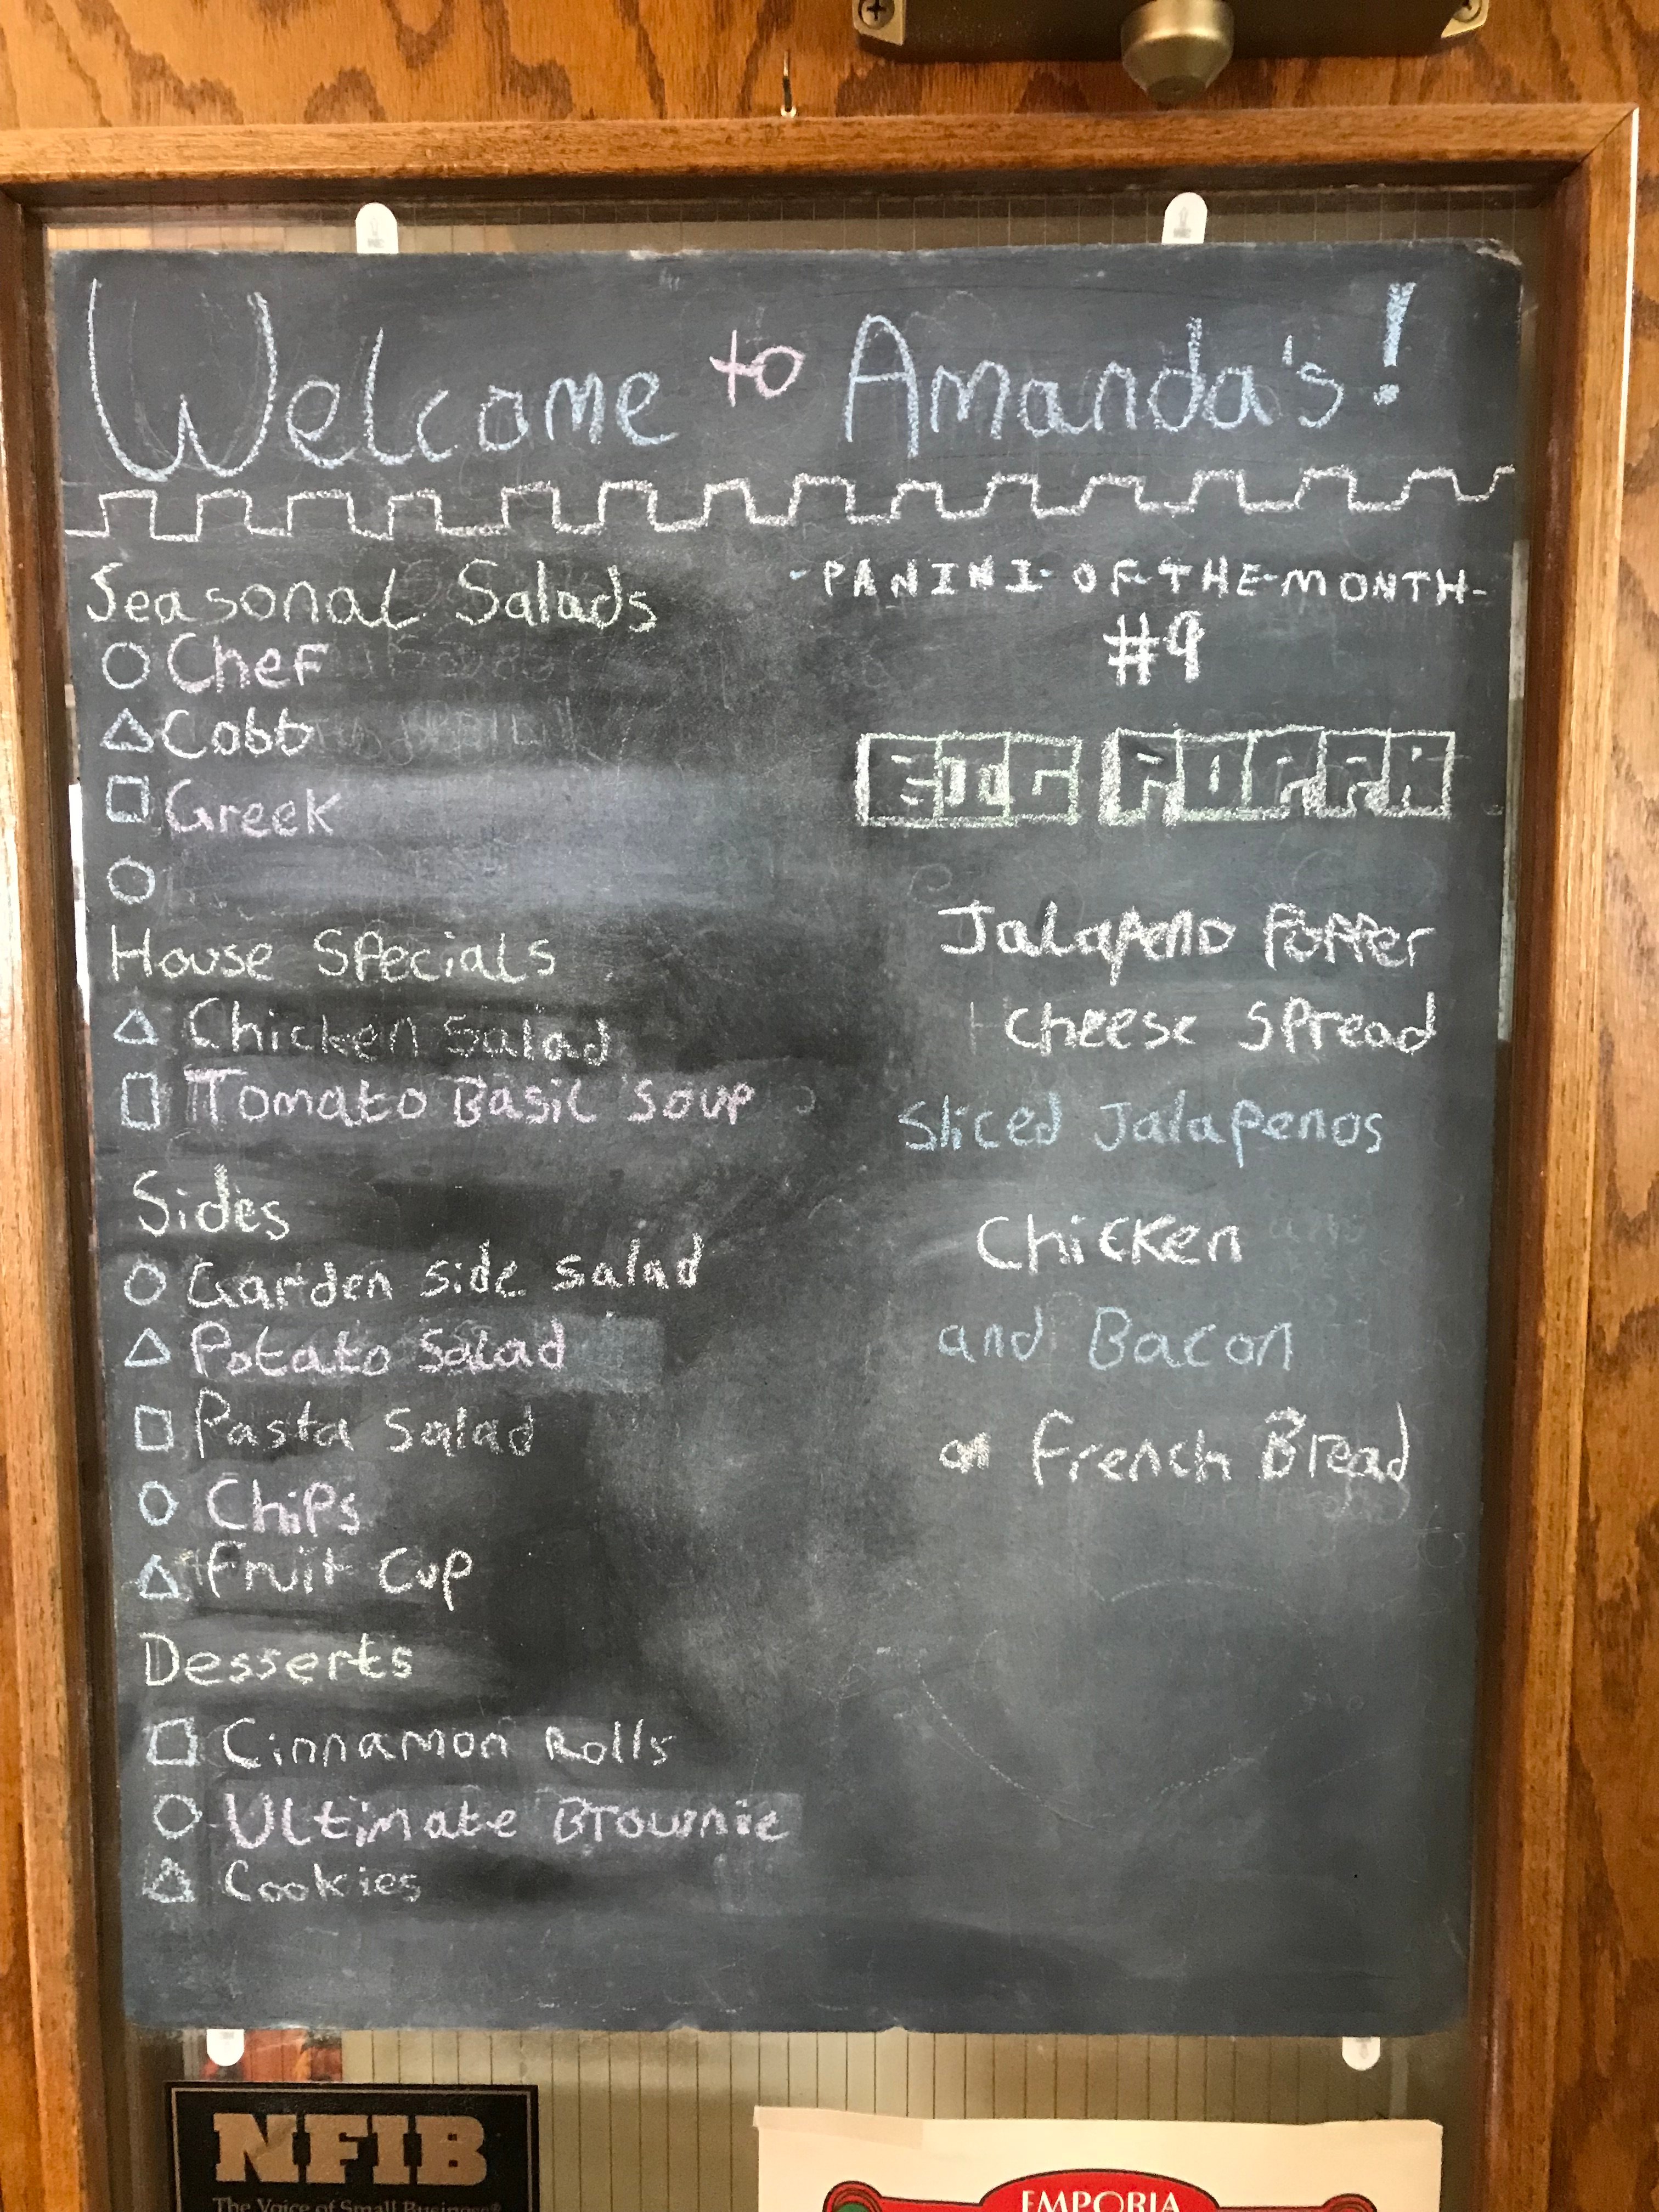 Welcome to Amanda's!
Seasonal Salads
Chef
Cobb
Greek
House Specials
Chicken Salad
Tomato Basil Soup
Sides
Garden Side Salad
Potato Salad
Pasta Salad
Chips
Fruit Cup
Desserts
Cinnamon Rolls
Ultimate Brownie
Cookies
-PANINI-OF-THE-MONTH-
#9
Jalapeno Popper
Cheese Spread
Sliced Jalapenos
Chicken
and Bacon
on French Bread
NFIB
The Voice of Small Business®
EMPORIA